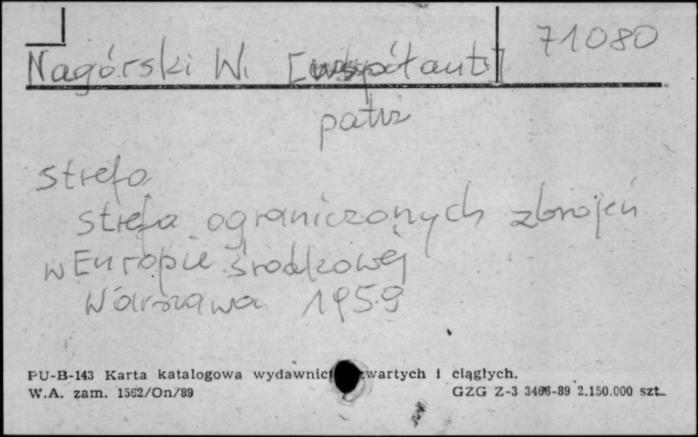 71080
Nagórski W. [współaut.]
patrz
Strefa
Strefa ograniczonych zbrojeń
w Europie środkowej
Warszawa 1959
PU-B-143 Karta katalogowa wydawnict wartych i ciągłych.
W.A. zam. 1562/On/89 GZG Z-3 3466-89 2.150.000 szt.